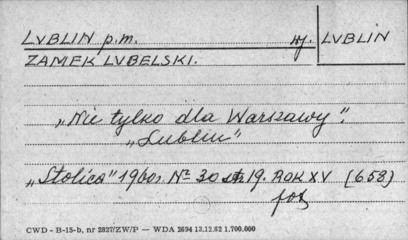 LVBLIN p.m. wj. LVBLIN
ZAMEK LVBELSKI.
„Nie tylko dla Warszawy".
„Lublin"
„Stolica" 1960r. Nº 30 str. 19. ROK XV (658)
fot
CWD - B-15-b, nr 2827/ZW/P — WDA 2694 13.12.62 1.700.000